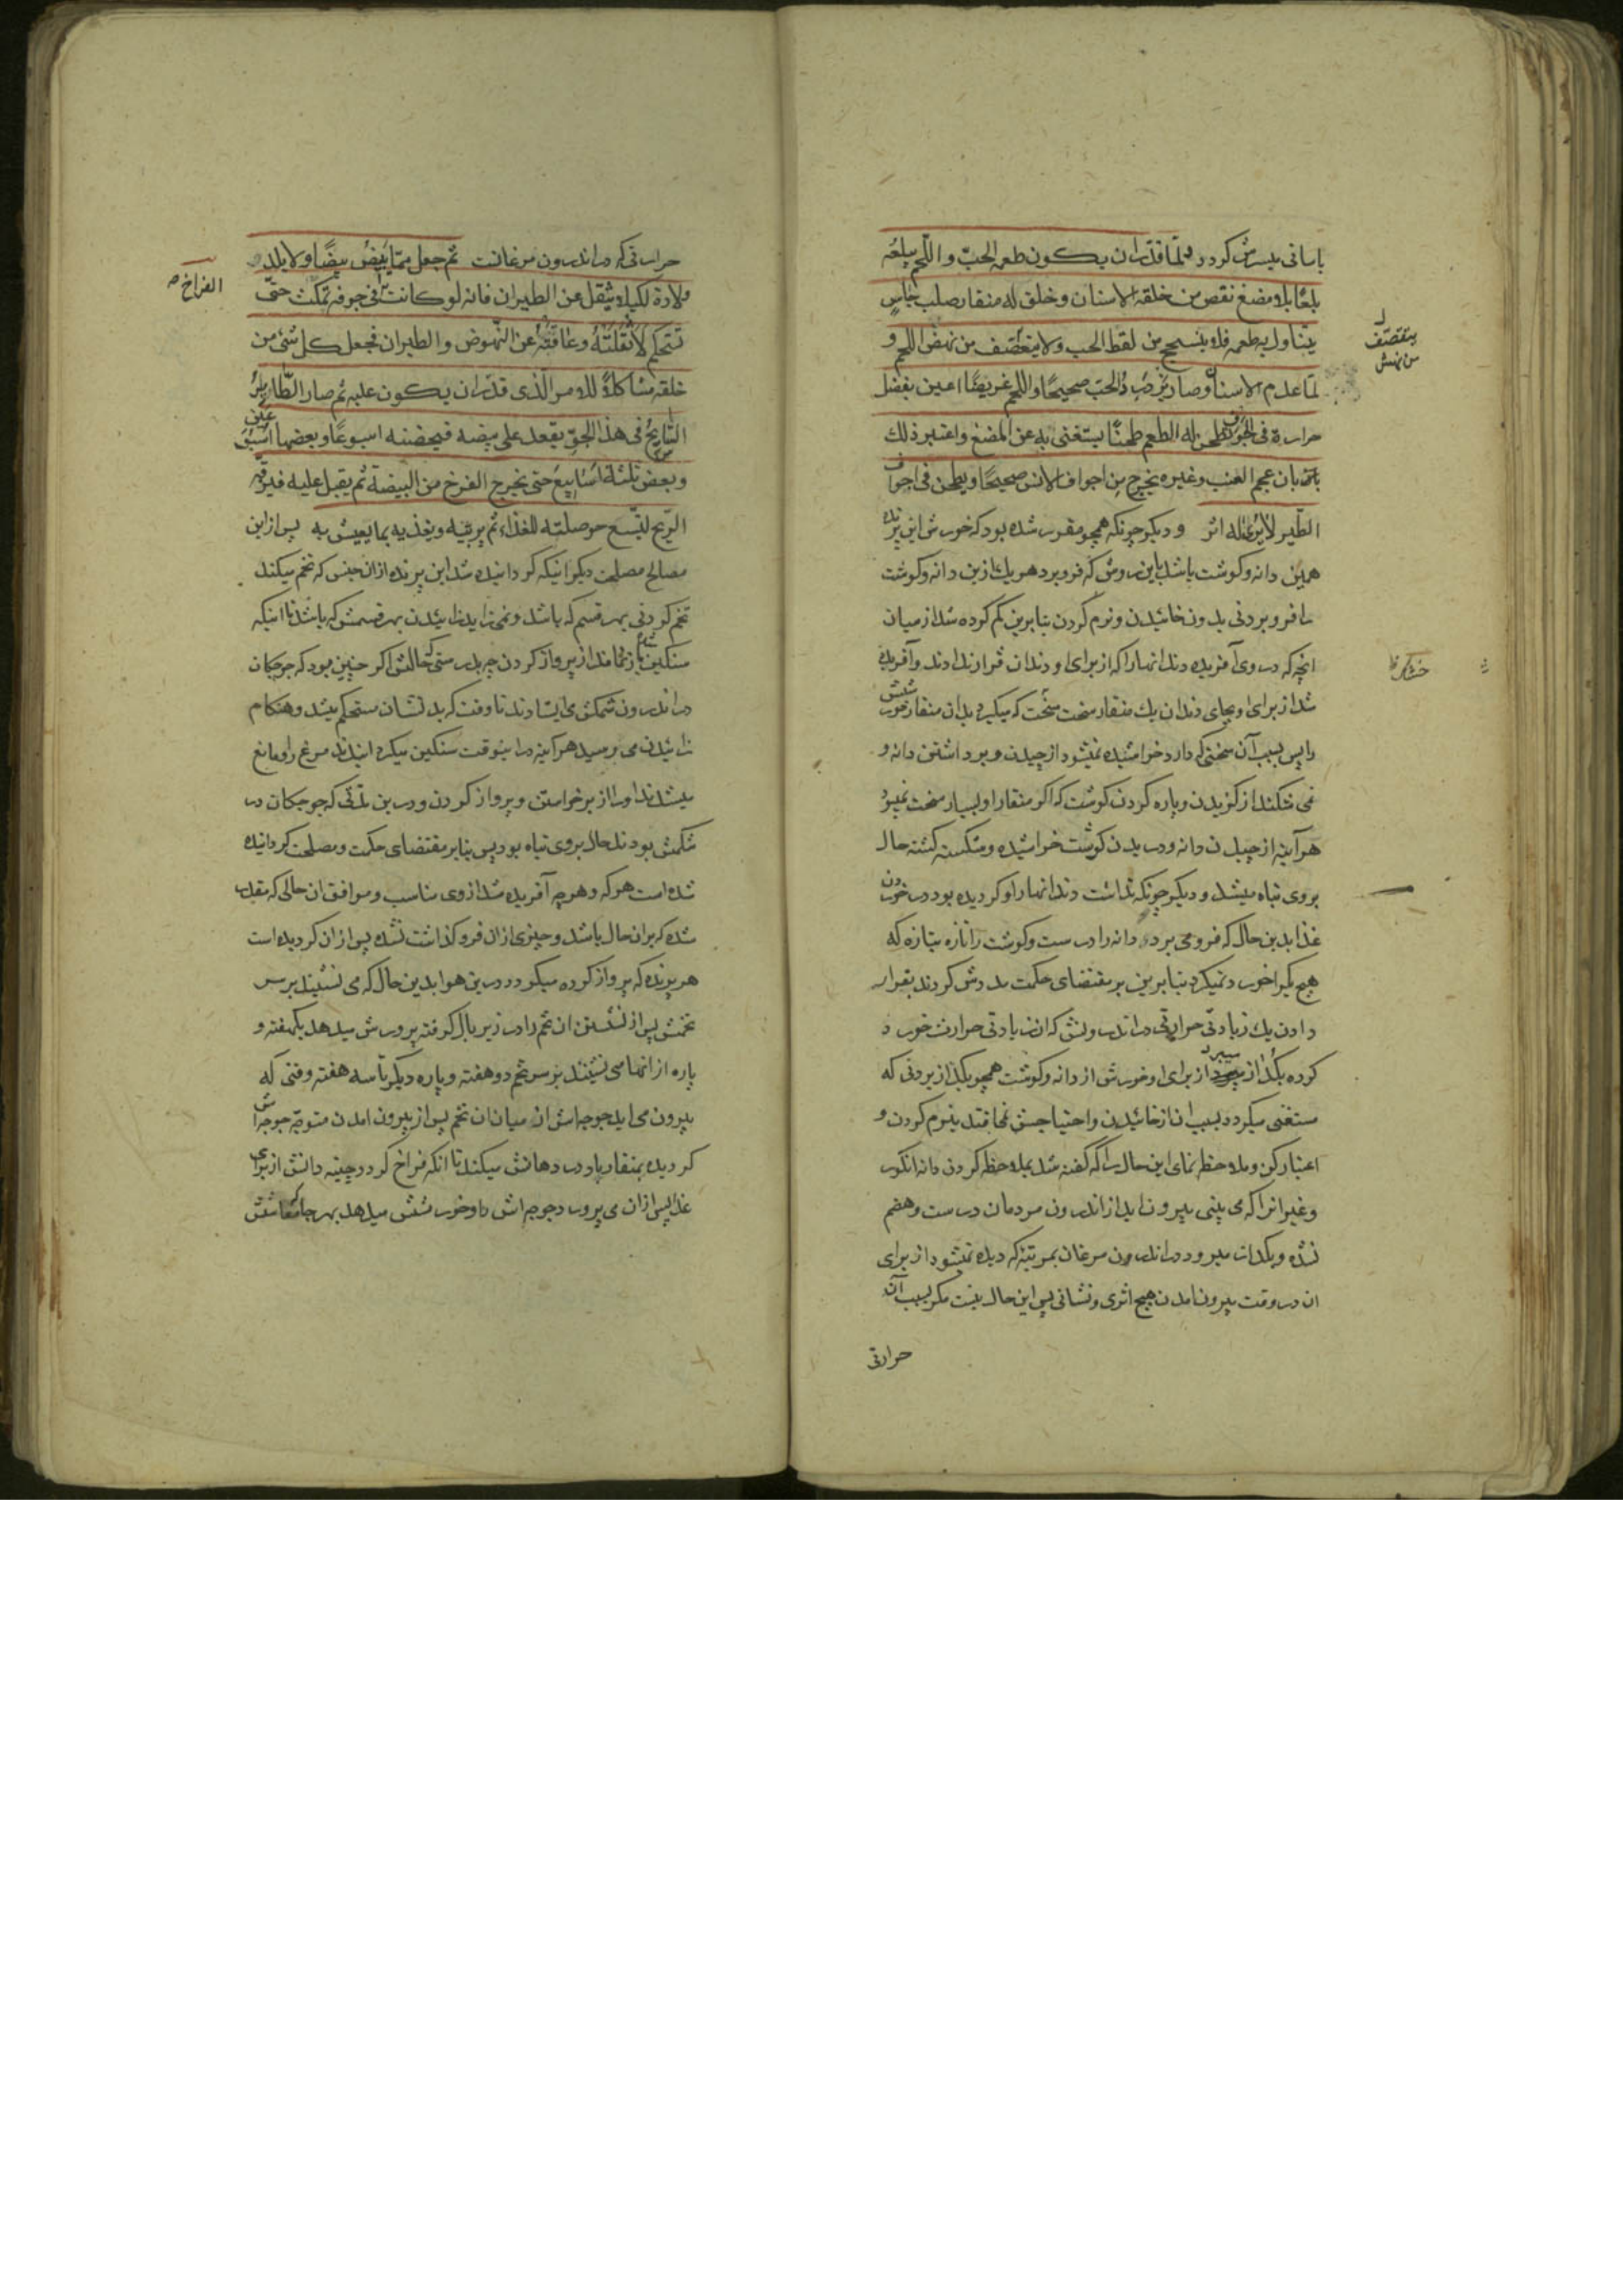 باسانی میسرش کردد ولما قدّر ان یکون طعمه الحبّ و اللّحم یبلعُه
بلعًا بلا مضغ نقص من خلقه الاسنان وخلق له منقار صلب جاسٍ
یتناول به طعمه فلا ینسحج من لقط الحب ولا یتقصّف من نهش اللحم و
لمّا عدم الاسنان وصار یزدرد الحبّ صحیحًا واللحم غریضًا اعین بفضل
حرارة فی الجوف تطحن له الطعم طحنًا یستغنی به عن المضغ واعتبر ذلک
بان عجم العنب وغیره یخرج من اجواف الانس صحیحًا ویطحن فی اجواف
الطّیر لا یُری له اثر و دیکر چونکه همچو مقرر شده بود که خورش این پرنده
همین دانه وکوشت باشد باین روش که فرو برد هر یک ازین دانه وکوشت
را فرو بردنی بدون خائیدن ونرم کردن بنابرین کم کرده شد از میان
انچه که در وی آفریده دندانها را که از برای او دندان قرار ندادند وآفریده
شد از برای او بجای دندان یک منقار سخت سخت که میکیرد بدان منقار خورشش
را پس بسبب آن سختی که دارد خراشیده نمیشود از چیدن و برداشتن دانه و
نمی شکند از کزیدن و پاره کردن کوشت که اکر منقار او بسیار سخت نمیبود
هرآینه از چیدن دانه ودریدن کوشت خراشیده وشکسته کشته حال
بروی تباه میشد و دیکر چونکه نداشت دندانها را و کردیده بود در خوردن
غذا بدین حال که فرو می برد دانه را درست وکوشت را تازه بتازه که
هیچ یکرا خورد نمیکرد بنابرین بر مقتضای حکمت مددش کردند بقرار
دادن یک زیادتی حرارتی در اندرونش که ان زیادتی حرارت خورد
کرده بکداز میبرد از برای او خورش از دانه وکوشت همچو بکداز بردنی که
مستغنی میکردد بسبب ان از خائیدن واحتیاجش نمی افتد بنرم کردن و
اعتبار کن وملاحظه نمای این حال را که کفته شد بملاحظه کردن دانه انکور
وغیر انرا که می بینی بیرون اید از اندرون مردمان درست وهضم
نشده وبکداز میرود در اندرون مرغان بمرتبه که دیده نمیشود از برای
ان در وقت بیرون امدن هیچ اثری ونشانی پس این حال نیست مکر بسبب آن
حرارتی
یتقصّف
من نهش
حرارتی که در اندرون مرغانست ثم جعل ممّا یبیض بیضًا ولا یلد
ولادة لکیلا یثقل عن الطیران فانه لو کانت الفراخ فی جوفه تمکث حتّی
تستحکم لاثقلته وعاقته عن النّهوض والطیران فجعل کل شئ من
خلقه مشاکلاً للامر الّذی قدّر ان یکون علیه ثم صار الطّائر
السّایح فی هذا الجوّ یقعد علی بیضه فیحضنه اسبوعًا وبعضها اسبوعین
وبعض ثلثة اسابیع حتی یخرج الفرخ من البیضة ثم یقبل علیه فیزقّه
الرّیح لتتّسع حوصلته للغذاء ثم یربّیه ویغذیه بما یعیش به پس از این
مصالح مصلحت دیکر انیکه کردانیده شد این پرنده ازان جنس که تخم میکند
تخم کردنی بهر قسم که باشد ونمی زاید زائیدن بهر قسمش که باشد تا اینکه
سنکین شده باز نماند از پرواز کردن چه بدرستی که حالش اکر چنین بود که جوجکان
در اندرون شکمش می ایستادند تا وقت که بدنشان مستحکم میشد وهنکام
زائیدن می رسید هرآینه در اینوقت سنکین میکردانیدند مرغ را ومانع
میشدند او را از برخواستن و پرواز کردن ودرین مدّتی که جوجکان در
شکمش بودند حال بروی تباه بود پس بنابر مقتضای حکمت ومصلحت کردانیده
شده است هرکه وهرچه آفریده شد از وی مناسب وموافق ان حالی که مقدر
شده که بران حال باشد وچیزی ازان فروکذاشت نشده پس ازان کردیده است
هر پرنده که پرواز کرده میکردد درین هوا بدین حال که می نشیند بر سر
تخمش پس از نشستن ان تخم را در زیر بال کرفته پرورش میدهد یکهفته و
پاره از انها می نشینند بر سر تخم دو هفته و پاره دیکر تا سه هفته وقتی که
بیرون می اید جوجه اش از میان ان تخم پس از بیرون امدن متوجّه جوجه اش
کردیده بمنقار باد در دهانش میکند تا انکه فراخ کردد چینه دانش از برای
غذا پس ازان می پرورد جوجه اش را وخورشش میدهد بهر چه که معاشش
الفراخ صح